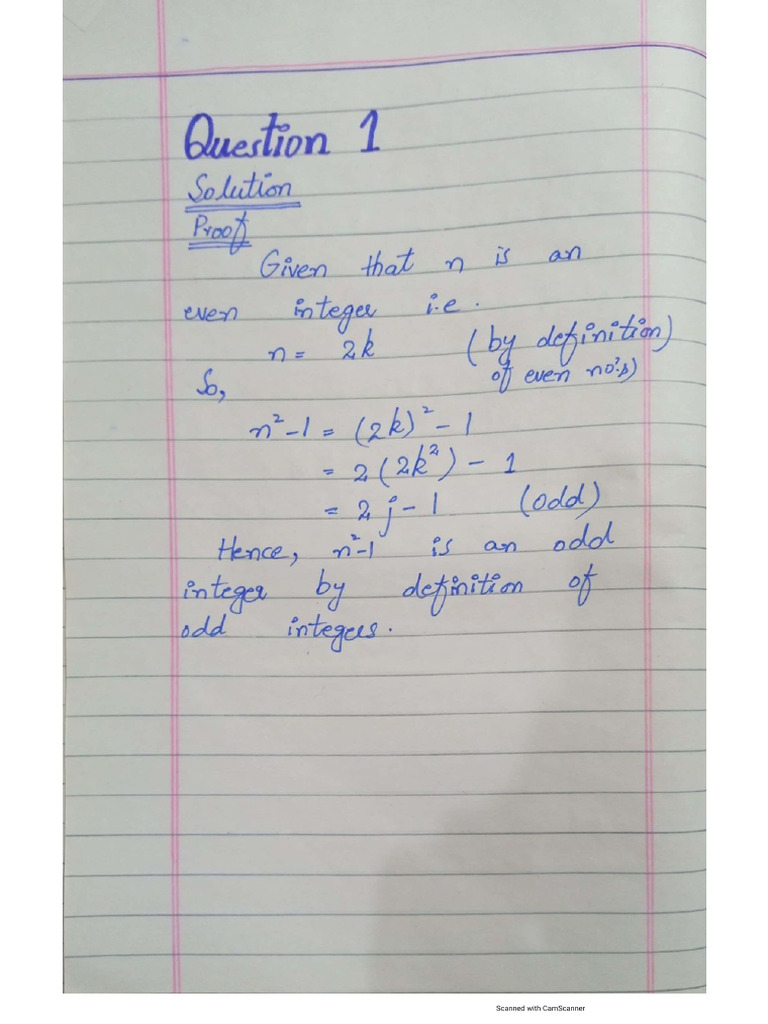 Question 1
Solution
Proof
Given that n is an
even integer i.e.
n = 2k (by definition)
of even no's)
So,
n²-1 = (2k)² - 1
= 2(2k²) - 1
= 2j - 1 (odd)
Hence, n²-1 is an odd
integer by definition of
odd integers.
Scanned with CamScanner